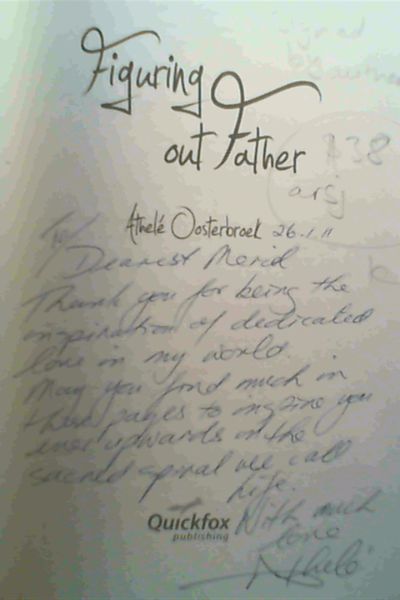 Signed
by author
Figuring
out Father
R38
Athelé Oosterbroek 26.1.11
To/
Dearest Merid
Thank you for being the
inspiration of dedicated
love in my world.
May you find much in
these pages to inspire you
ever upwards on the
sacred spiral we call
Life.
With much
love
Athelé
Quickfox
publishing